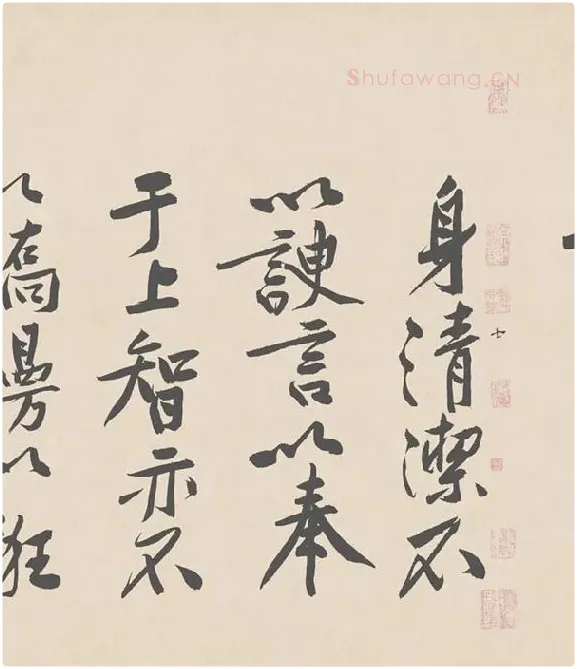 Shufawang.CN
身清潔不
七
以諛言以奉
于上智亦不
以狂